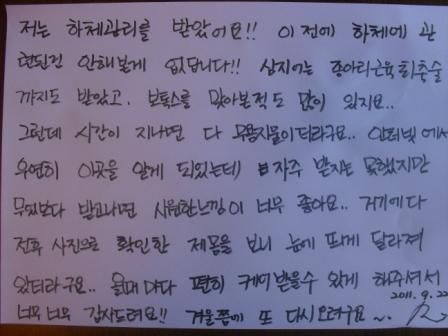 저는 하체관리를 받았어요!! 이전에 하체에 관
련된건 안해본게 없답니다!! 심지어는 종아리근육퇴축술
까지도 받았고, 보톡스를 맞아본적도 많이 있지요..
그런데 시간이 지나면 다 무용지물이더라구요.. 인터넷에서
우연히 이곳을 알게 되었는데 자주 받지는 못했지만
무엇보다 받고나면 시원한느낌이 너무 좋아요.. 거기에다
전후 사진으로 확인한 제몸을 보니 눈에 띄게 달라져
있더라구요.. 올때마다 편히 케어받을수 있게 해주셔서
2011. 9. 22
너무너무 감사드려요!! 겨울쯤에 또 다시오려구요~.